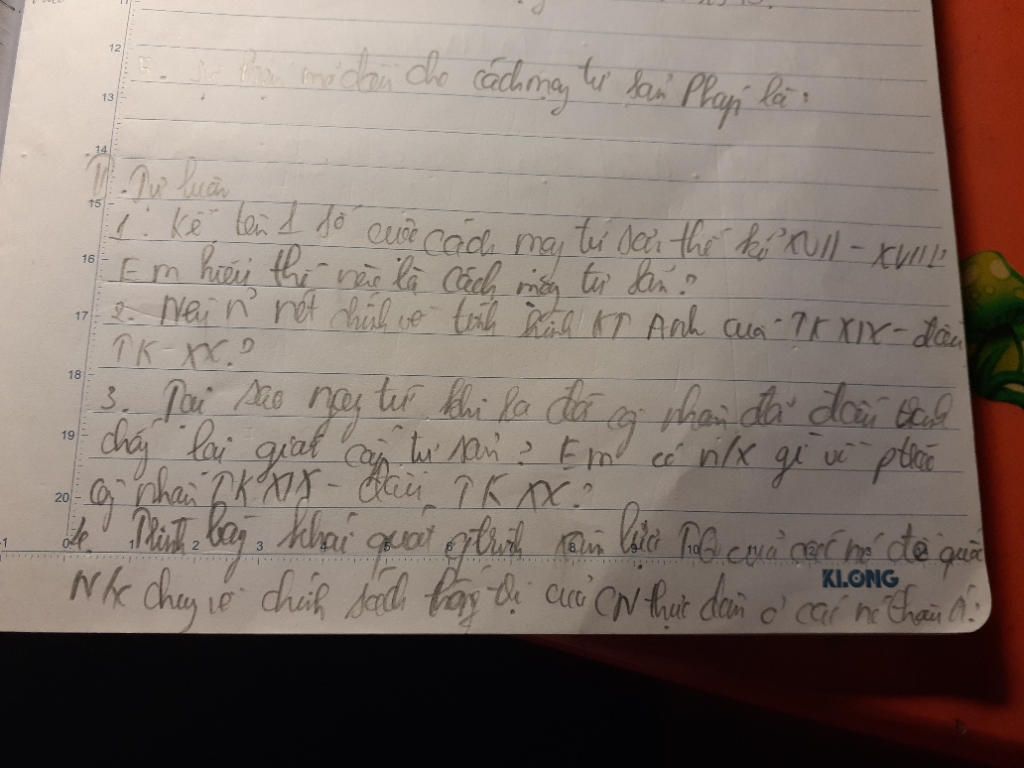 cho cách mạng tư sản Pháp là:
II. Tự luận
1. Kể tên 1 số cuộc cách mạng tư sản thế kỉ XVII - XVIII?
Em hiểu thế nào là cách mạng tư sản?
2. Nêu n~ nét chính về tình hình KT Anh cuối TK XIX - đầu
TK XX?
3. Tại sao ngay từ khi ra đời cg nhân đã đấu tranh
chống lại giai cấp tư sản? Em có n/x gì về ptrào
cg nhân TK XIX - đầu TK XX?
4. Trình bày khái quát qtrình xâm lược của các nc đế quốc
N/x chung về chính sách thống trị của CN thực dân ở các nc
KLONG
12
13
14
15
16
17
18
19
20